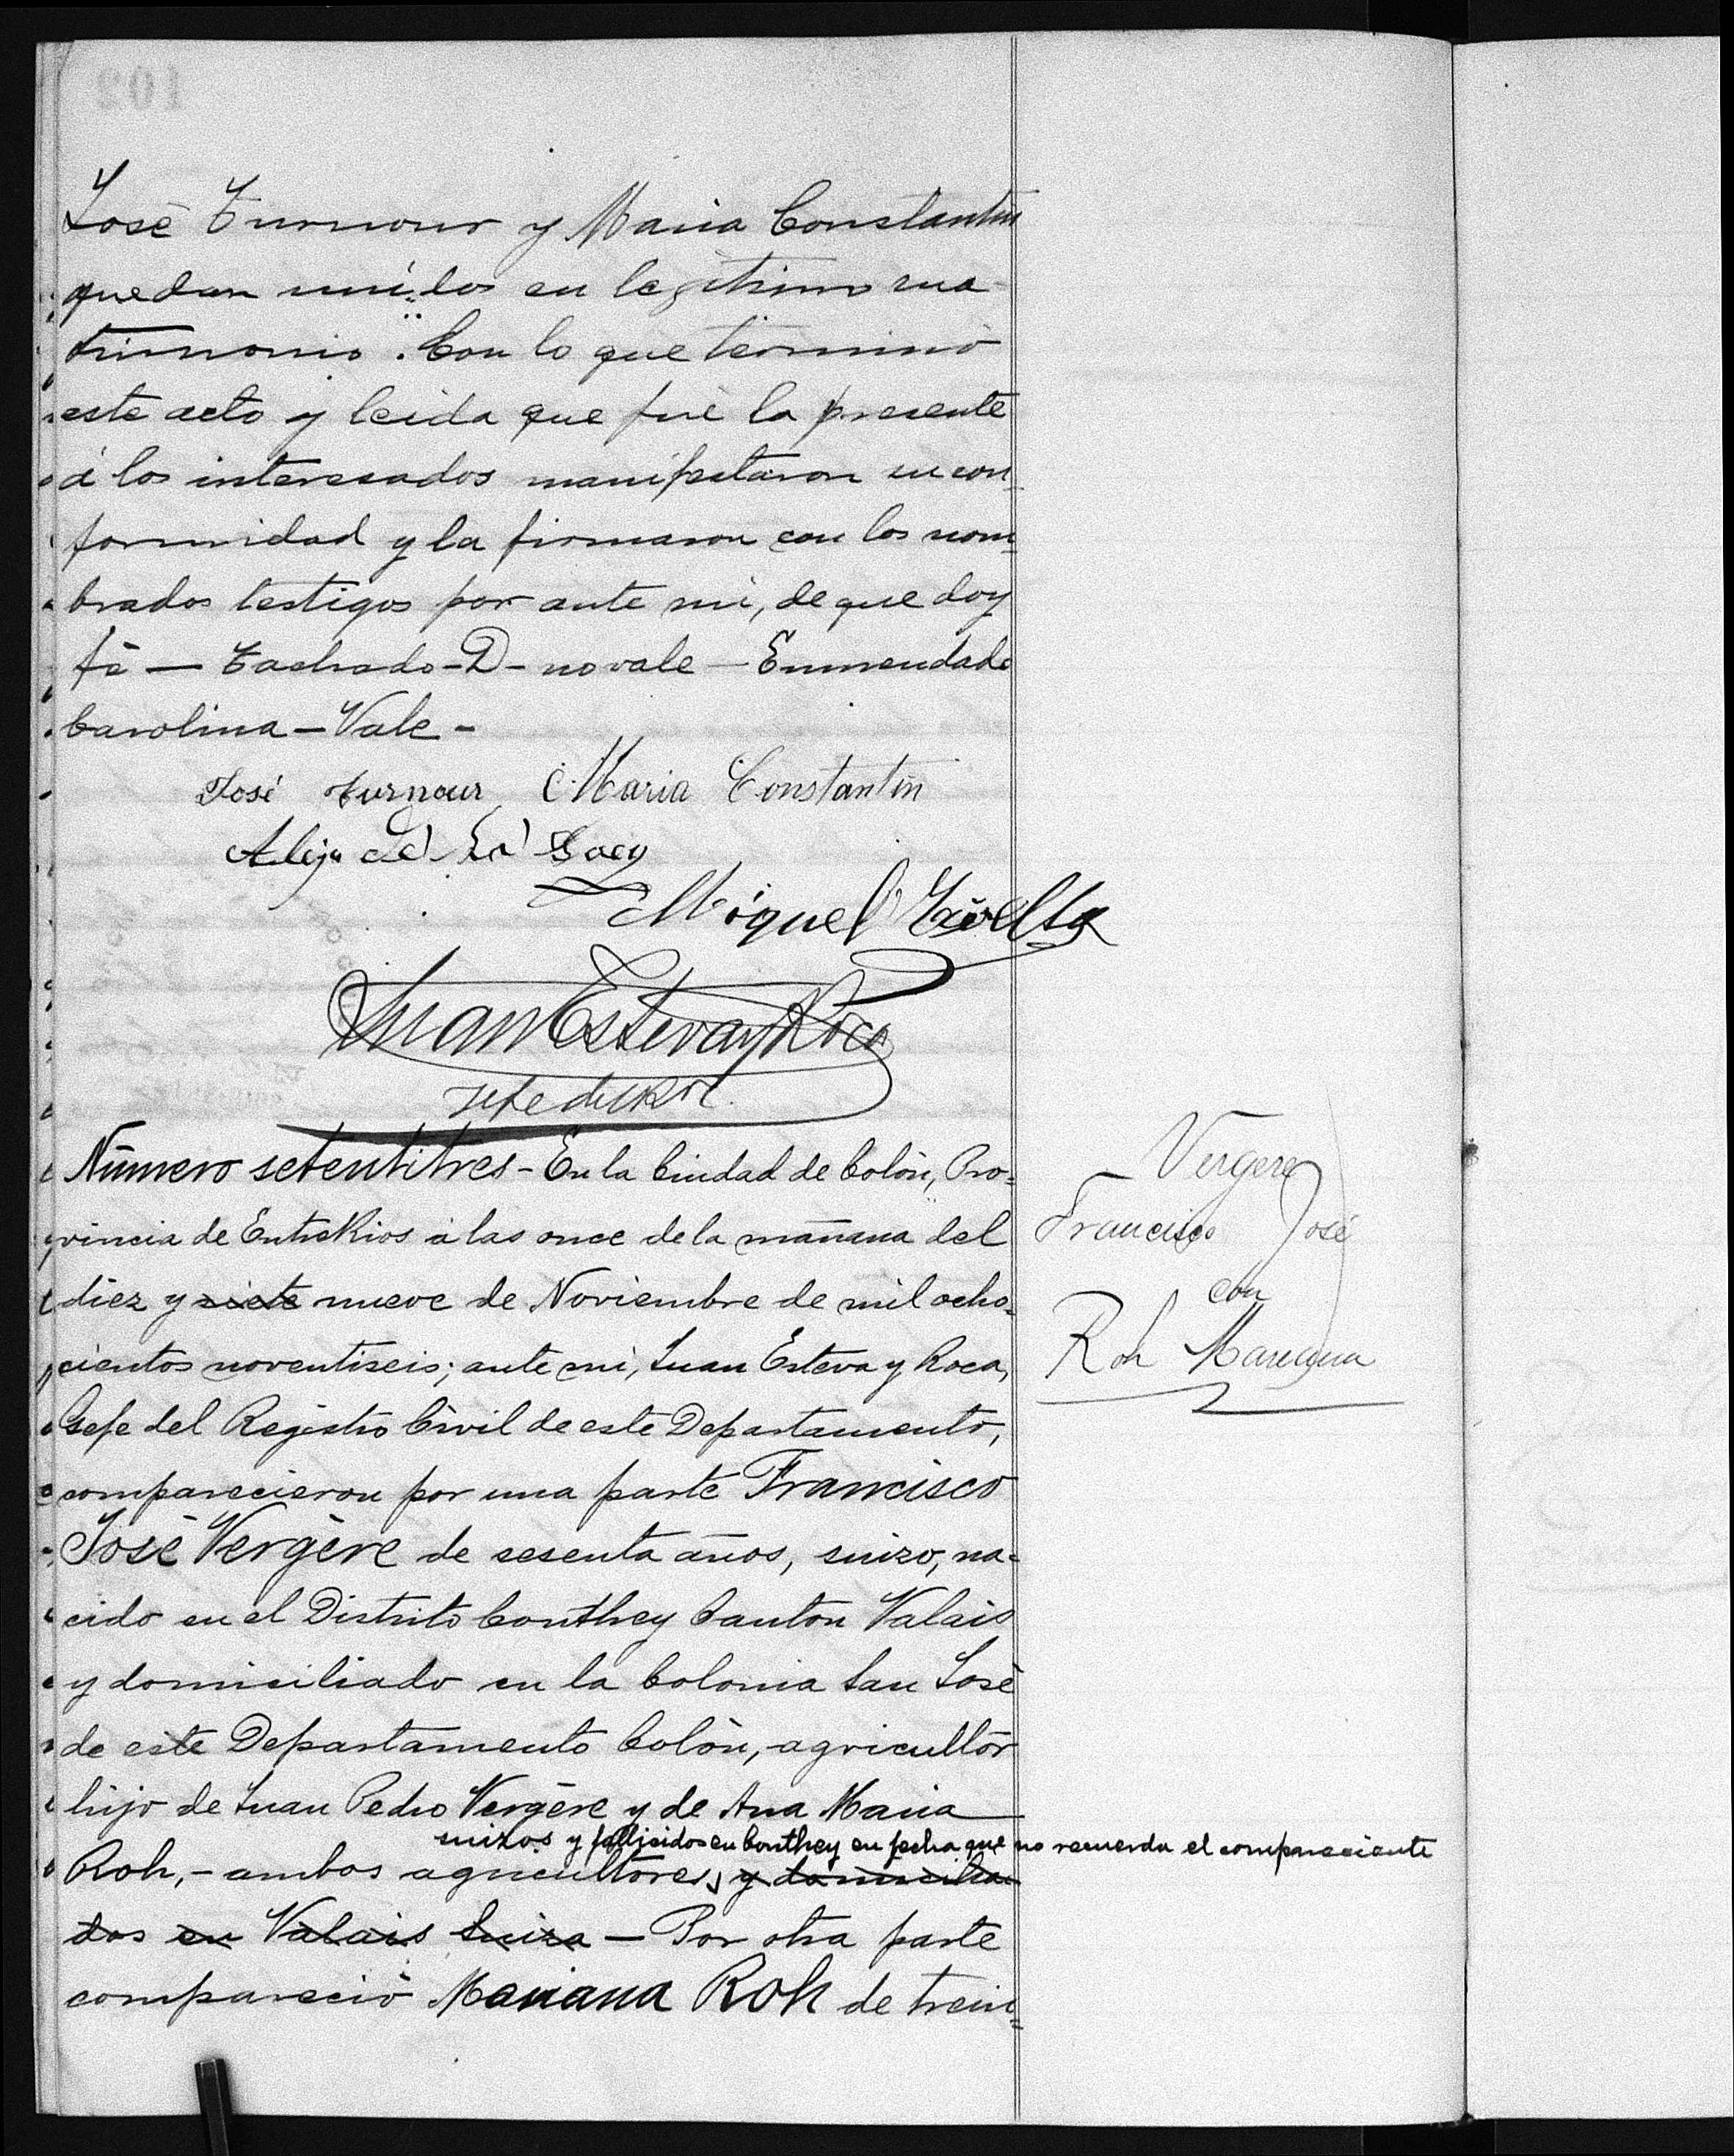 José Turnour y Maria Constantin
quedan unidos en legitimo ma
trimonio. Con lo que terminó
este acto y leida que fué la presente
á los interesados manifestaron su con-
formidad y la firmaron con los nom-
brados testigos por ante mi, de que doy
fé — Tachado - D - no vale — Enmendado
Carolina — Vale -
José Turnour Maria Constantin
Miguel
Juan Esteva y Roca
Jefe del R. C.
Número setentitres - En la Ciudad de Colón, Pro-
vincia de Entre Rios á las once de la mañana del
diez y siete nueve de Noviembre de mil ocho-
cientos noventiseis; ante mi, Juan Esteva y Roca,
Gefe del Registro Civil de este Departamento,
comparecieron por una parte Francisco
José Vergère de sesenta años, suizo, na-
cido en el Distrito Conthey Canton Valais
y domiciliado en la Colonia San José
de este Departamento Colón, agricultor
hijo de Juan Pedro Vergère y de Ana Maria
suizos y fallecidos en Conthey en fecha que no recuerda el compareciente
Roh, - ambos agricultores, y domicilia
dos en Valais Suiza — Por otra parte
compareció Mariana Roh de trein-
Vergere
Francisco José
con
Roh Mariana
102